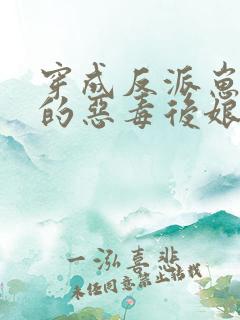 穿成反派崽
的惡毒後娘
一泓喜悲
未經同意禁止轉載